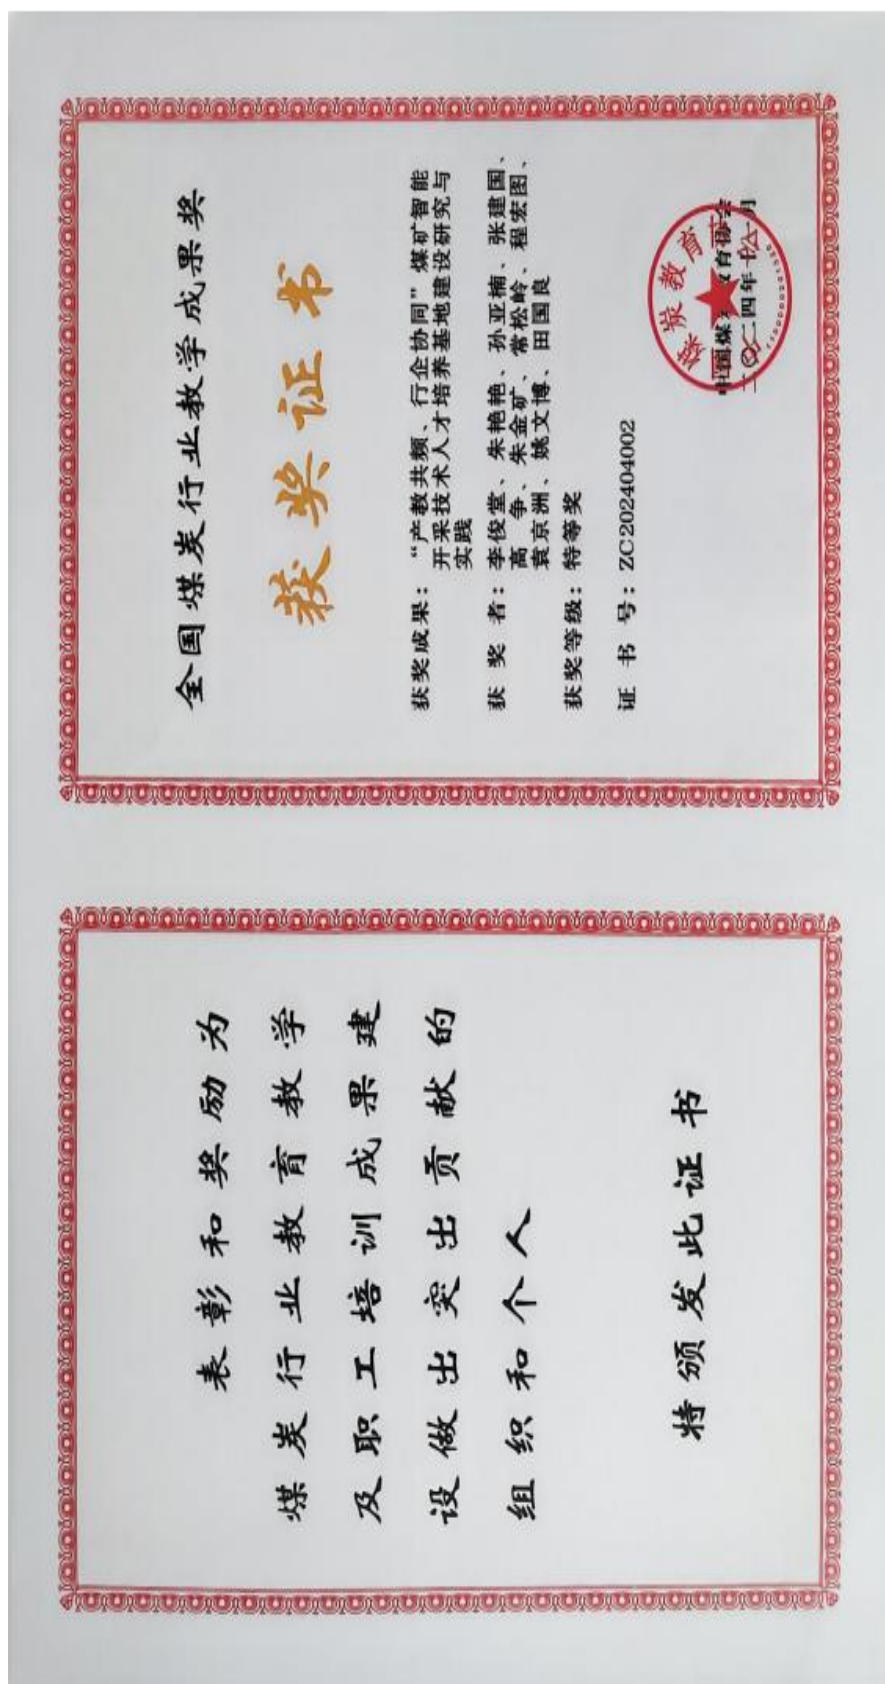 表彰和奖励为
煤炭行业教育教学
及职工培训成果建
设做出突出贡献的
组织和个人
特颁发此证书
全国煤炭行业教学成果奖
获奖证书
获奖成果：“产教共频、行企协同”煤矿智能
开采技术人才培养基地建设研究与
实践
获 奖 者：李俊堂、朱艳艳、孙亚楠、张建国、
高 争、朱金矿、常松岭、程宏图、
袁京洲、姚文博、田国良
获奖等级：特等奖
证 书 号：ZC202404002
中国煤炭教育协会
二〇二四年十一月